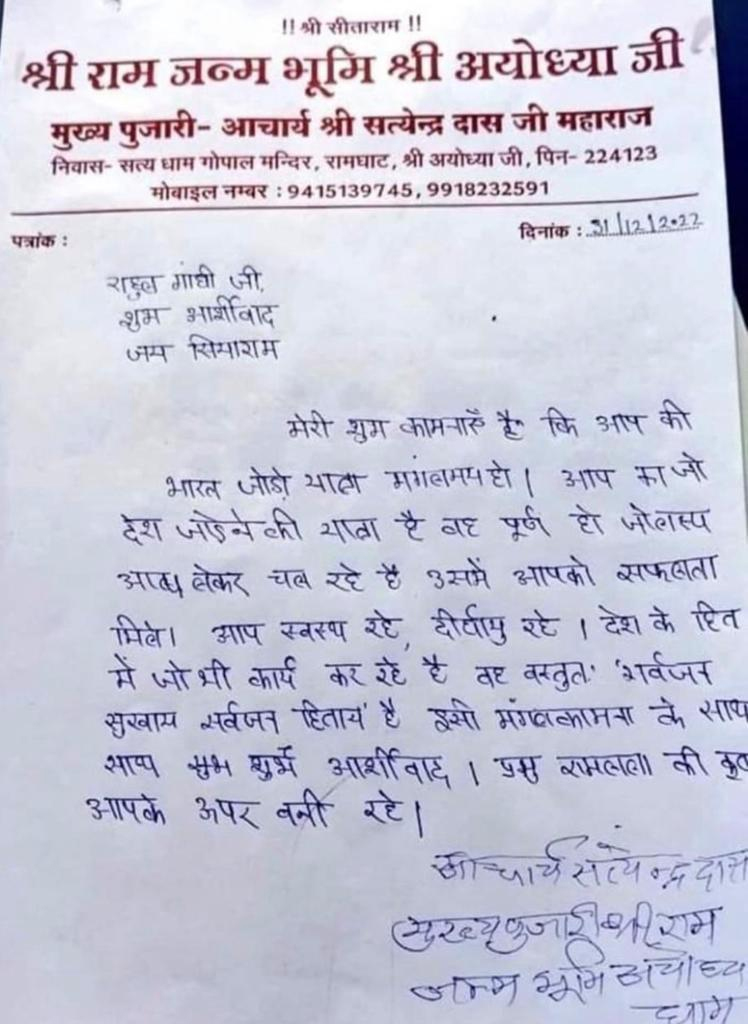 !! श्री सीताराम !!
श्री राम जन्म भूमि श्री अयोध्या जी
मुख्य पुजारी- आचार्य श्री सत्येन्द्र दास जी महाराज
निवास- सत्य धाम गोपाल मन्दिर, रामघाट, श्री अयोध्या जी, पिन- 224123
मोबाइल नम्बर : 9415139745, 9918232591
पत्रांक : दिनांक : 31/12/2022
राहुल गांधी जी,
शुभ आर्शीवाद
जय सियाराम
मेरी शुभ कामनाऐं है कि आप की
भारत जोड़ो यात्रा मंगलमय हो । आप का जो
देश जोड़ने की यात्रा है वह पूर्ण हो जो लक्ष्य
लेकर चल रहे है उसमें आपको सफलता
मिले। आप स्वस्थ रहे, दीर्घायु रहे । देश के हित
में जो भी कार्य कर रहे है वह वस्तुतः 'सर्वजन
सुखाय सर्वजन हिताय' है इसी मंगलकामना के साथ
साथ शुभ आर्शीवाद । प्रभु रामलला की
आपके ऊपर बनी रहे।
आचार्य सत्येन्द्र दास
मुख्य पुजारी श्री राम
जन्म भूमि अयोध्या
धाम